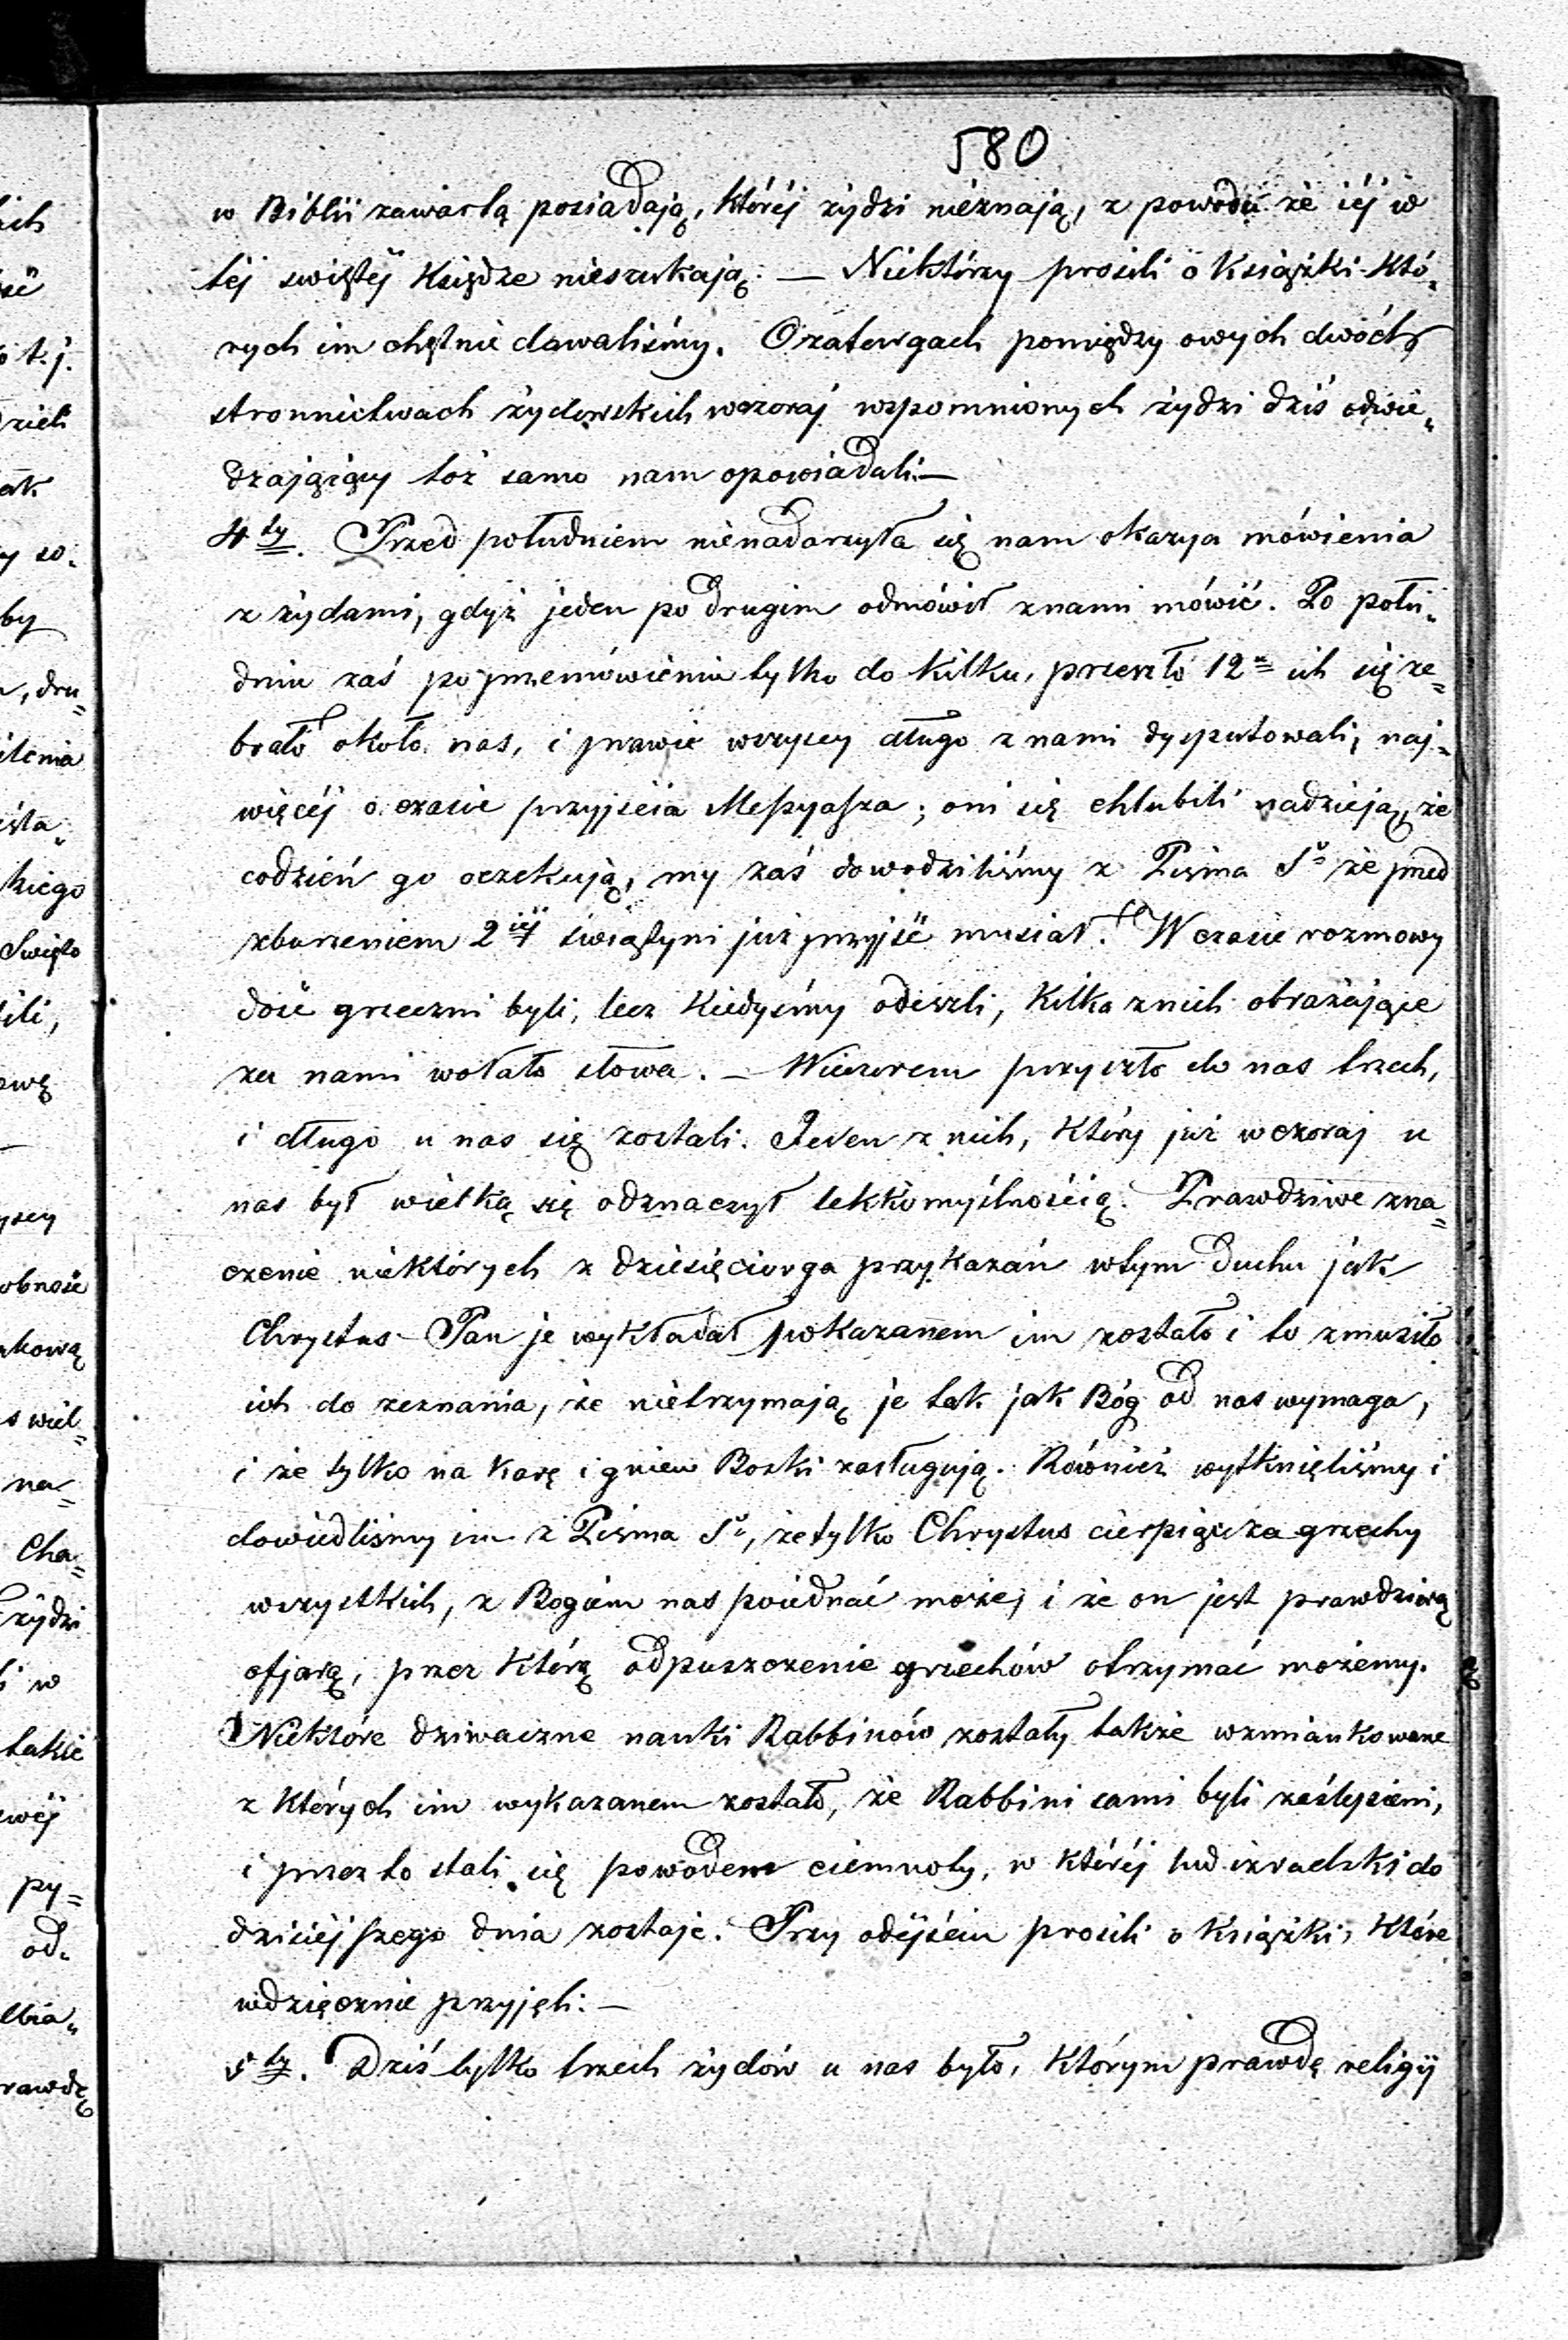 580
w Biblii zawartą posiadają, któréj żydzi nieznają, z powodu że iéj w
téj swiętéj Księdze nieszukają. — Niektórzy prosili o Książki któ„
rych im chętnie dawaliśmy. O zatargach pomiędzy owych dwóch
stronnictwach żydowskich wczoraj wspomnionych żydzi dziś odwie„
dzający toż samo nam opowiadali.—
4ty. Przed południem nienadarzyła się nam okazya mówienia
z żydami, gdyż jeden po drugim odmówił znami mówić. Po połu„
dniu zaś po przemówieniu tylko do kilku, przeszło 12u ich się ze=
brało około nas, i prawie wszyscy długo z nami dysputowali, naj„
więcéj o czasie przyjścia Messyasza; oni się chlubili nadzieją, że
codzień go oczekują, my zaś dowodziliśmy z Pisma Sº że przed
zburzeniem 2iéj świątyni już przyjść musiał. W czasie rozmowy
dość grzeczni byli, lecz kiedyśmy odeszli, kilka znich obrażające
za nami wołało słowa. — Wieczorem przyszło do nas trzech,
i długo u nas się zostali. Jeden z nich, który już wczoraj u
nas był wielką się odznaczył lekkomyślnością. Prawdziwe zna=
czenie niektórych z dziesięciorga przykazań wtym duchu jak
Chrystus Pan je wykładał pokazanem im zostało i to zmusiło
ich do zeznania, że nietrzymają je tak jak Bóg od nas wymaga,
i że tylko na karę i gniew Bozki zasługują. Również wytknięliśmy i
dowiedliśmy im z Pisma Sº, że tylko Chrystus cierpiąc za grzechy
wszystkich, z Bogiem nas poiednać może, i że on jest prawdziwą
ofjarą, przez którą odpuszczenie grzechów otrzymać możemy.
Niektóre dziwaczne nauki Rabbinów zostały także wzmiankowane
z których im wykazanem zostało, że Rabbini sami byli zaślepieni,
i przez to stali się powodem ciemnoty, w któréj lud izraelski do
dzisiéjszego dnia zostaje. Przy odéjściu prosili o książki, które
wdzięcznie przyjęli.—
5ty. Dziś tylko trzech żydów u nas było, którym prawdę religij